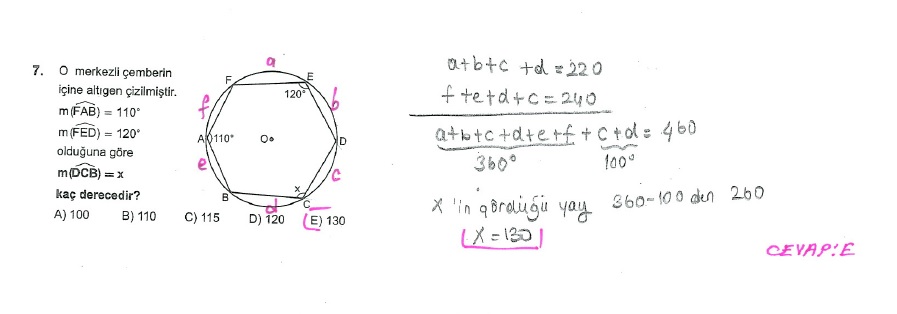 7. O merkezli çemberin
içine altıgen çizilmiştir.
m(FAB) = 110°
m(FED) = 120°
olduğuna göre
m(DCB) = x
kaç derecedir?
A) 100 B) 110 C) 115 D) 120 E) 130
a
F E
120°
f b
A 110° O D
e c
x
B C
d
a+b+c+d=220
f+e+d+c=240
a+b+c+d+e+f+c+d=460
360° 100°
x'in gördüğü yay 360-100 den 260
x=130
CEVAP:E